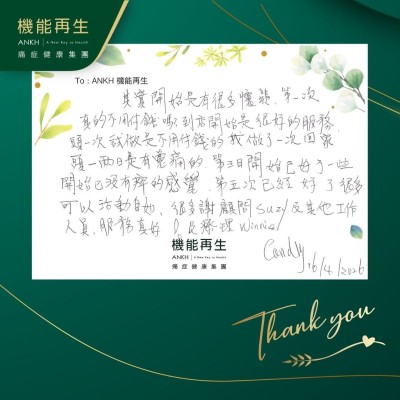 機能再生
ANKH | A New Key to Health
痛症健康集團
To : ANKH 機能再生
其實開始是有很多懷疑，第一次
真的不用付錢嗎 到亦開始是很好的服務，
頭一次我做是不用付錢的 我做了一次回家
頭一兩日是有虛痛的. 第三日開始已好了一些
開始已沒有痹的感覺. 第五次已經好了很多
可以活動自如，很多謝顧問 Suzy 及其他工作
人員，服務真好！及療理 Winnie!
機能再生
ANKH | A New Key to Health
痛症健康集團
Candy 16/4/2026
Thank you